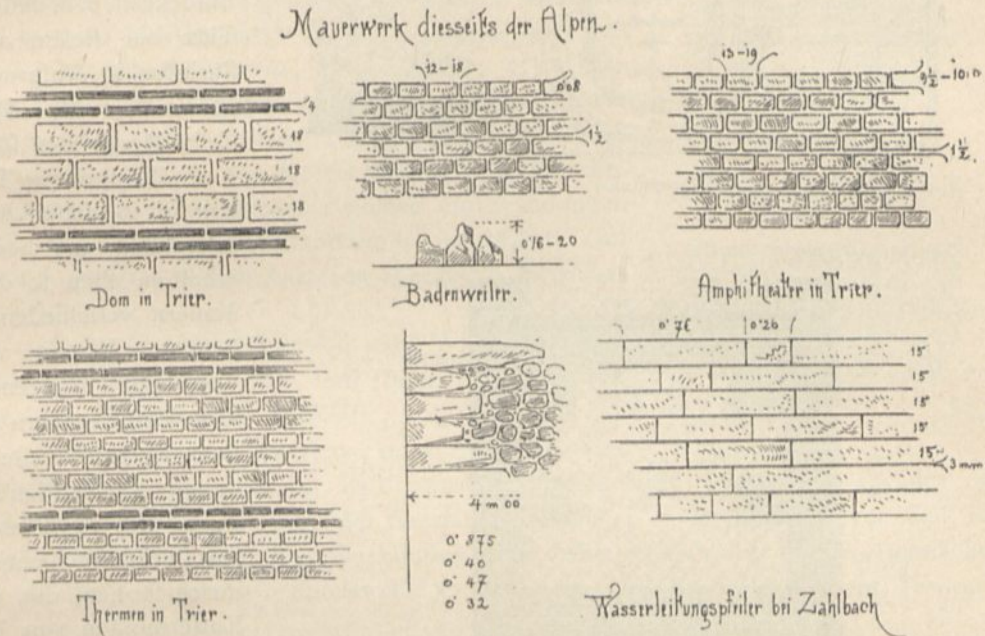 Mauerwerk diesseits der Alpen.
4
18
18
18
Dom in Trier.
12-18
0.08
1½
0.16-20
Badenweiler.
13-19
9½-10
1½.
Amphitheater in Trier.
Thermen in Trier.
4 m 00
0.875
0.40
0.47
0.32
0.26
15
15
15
15
15
3 mm
Wasserleitungspfeiler bei Zahlbach